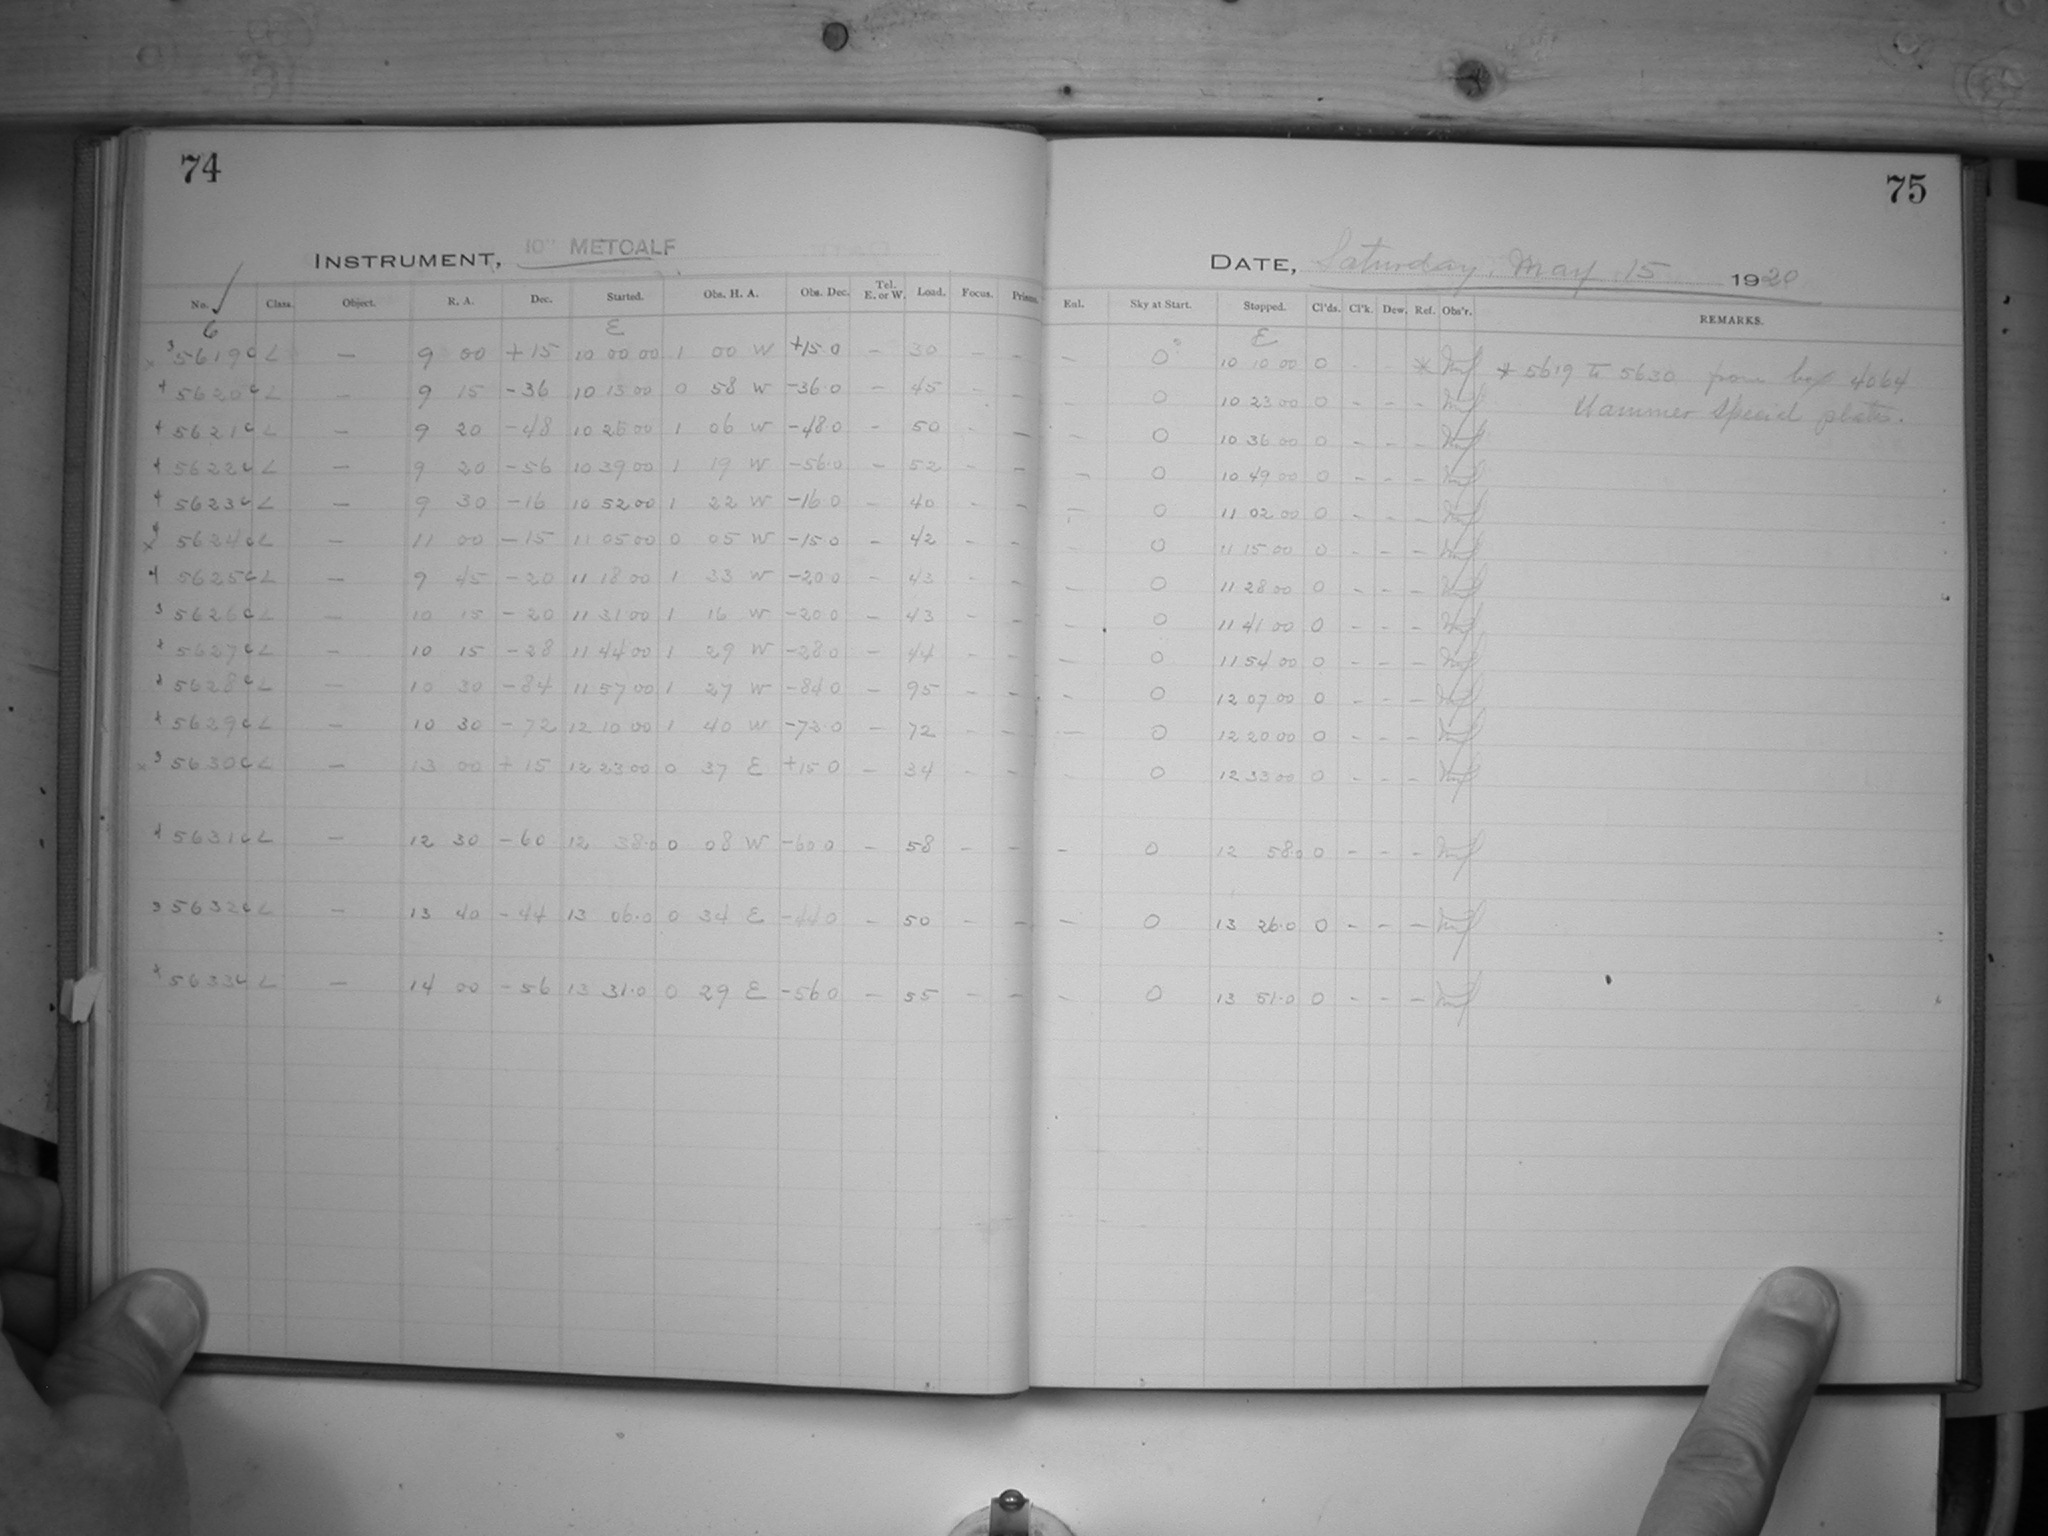 74
75
INSTRUMENT, 10" METCALF
DATE, Saturday, May 15 1920
No. Class. Object. R. A. Dec. Started. Obs. H. A. Obs. Dec. Tel. E. or W. Load. Focus. Prisms. Enl. Sky at Start. Stopped. Cl'ds. Cl'k. Dew. Ref. Obs'r. REMARKS.
6 E E
3 5619 C L — 9 00 +15 10 00 00 1 00 W +15 0 — 30 — — — 0 10 10 00 0 - - * * 5619 to 5630 from box 4064
4 5620 C L — 9 15 -36 10 13 00 0 58 W -36.0 — 45 — — — 0 10 23 00 0 - - — Hammer Special plates.
4 5621 C L — 9 20 -48 10 26 00 1 06 W -48 0 — 50 — — — 0 10 36 00 0 - - —
4 5622 C L — 9 20 -56 10 39 00 1 19 W -56.0 — 52 — — — 0 10 49 00 0 - - —
4 5623 C L — 9 30 -16 10 52 00 1 22 W -16 0 — 40 — — — 0 11 02 00 0 - - —
5624 C L — 11 00 -15 11 05 00 0 05 W -15 0 — 42 — — — 0 11 15 00 0 - - —
4 5625 C L — 9 45 -20 11 18 00 1 33 W -20 0 — 43 — — — 0 11 28 00 0 - - —
3 5626 C L — 10 15 -20 11 31 00 1 16 W -20 0 — 43 — — — 0 11 41 00 0 - - —
5627 C L — 10 15 -28 11 44 00 1 29 W -28 0 — 44 — — — 0 11 54 00 0 - - —
5628 C L — 10 30 -84 11 57 00 1 27 W -84 0 — 95 — — — 0 12 07 00 0 - - —
5629 C L — 10 30 -72 12 10 00 1 40 W -72.0 — 72 — — — 0 12 20 00 0 - - —
3 5630 C L — 13 00 +15 12 23 00 0 37 E +15 0 — 34 — — — 0 12 33 00 0 - - —
4 5631 C L — 12 30 -60 12 38.0 0 08 W -60 0 — 58 — — — 0 12 58.0 0 - - —
3 5632 C L — 13 40 -44 13 06.0 0 34 E -44 0 — 50 — — — 0 13 26.0 0 - - —
5633 C L — 14 00 -56 13 31.0 0 29 E -56 0 — 55 — — — 0 13 51.0 0 - - —